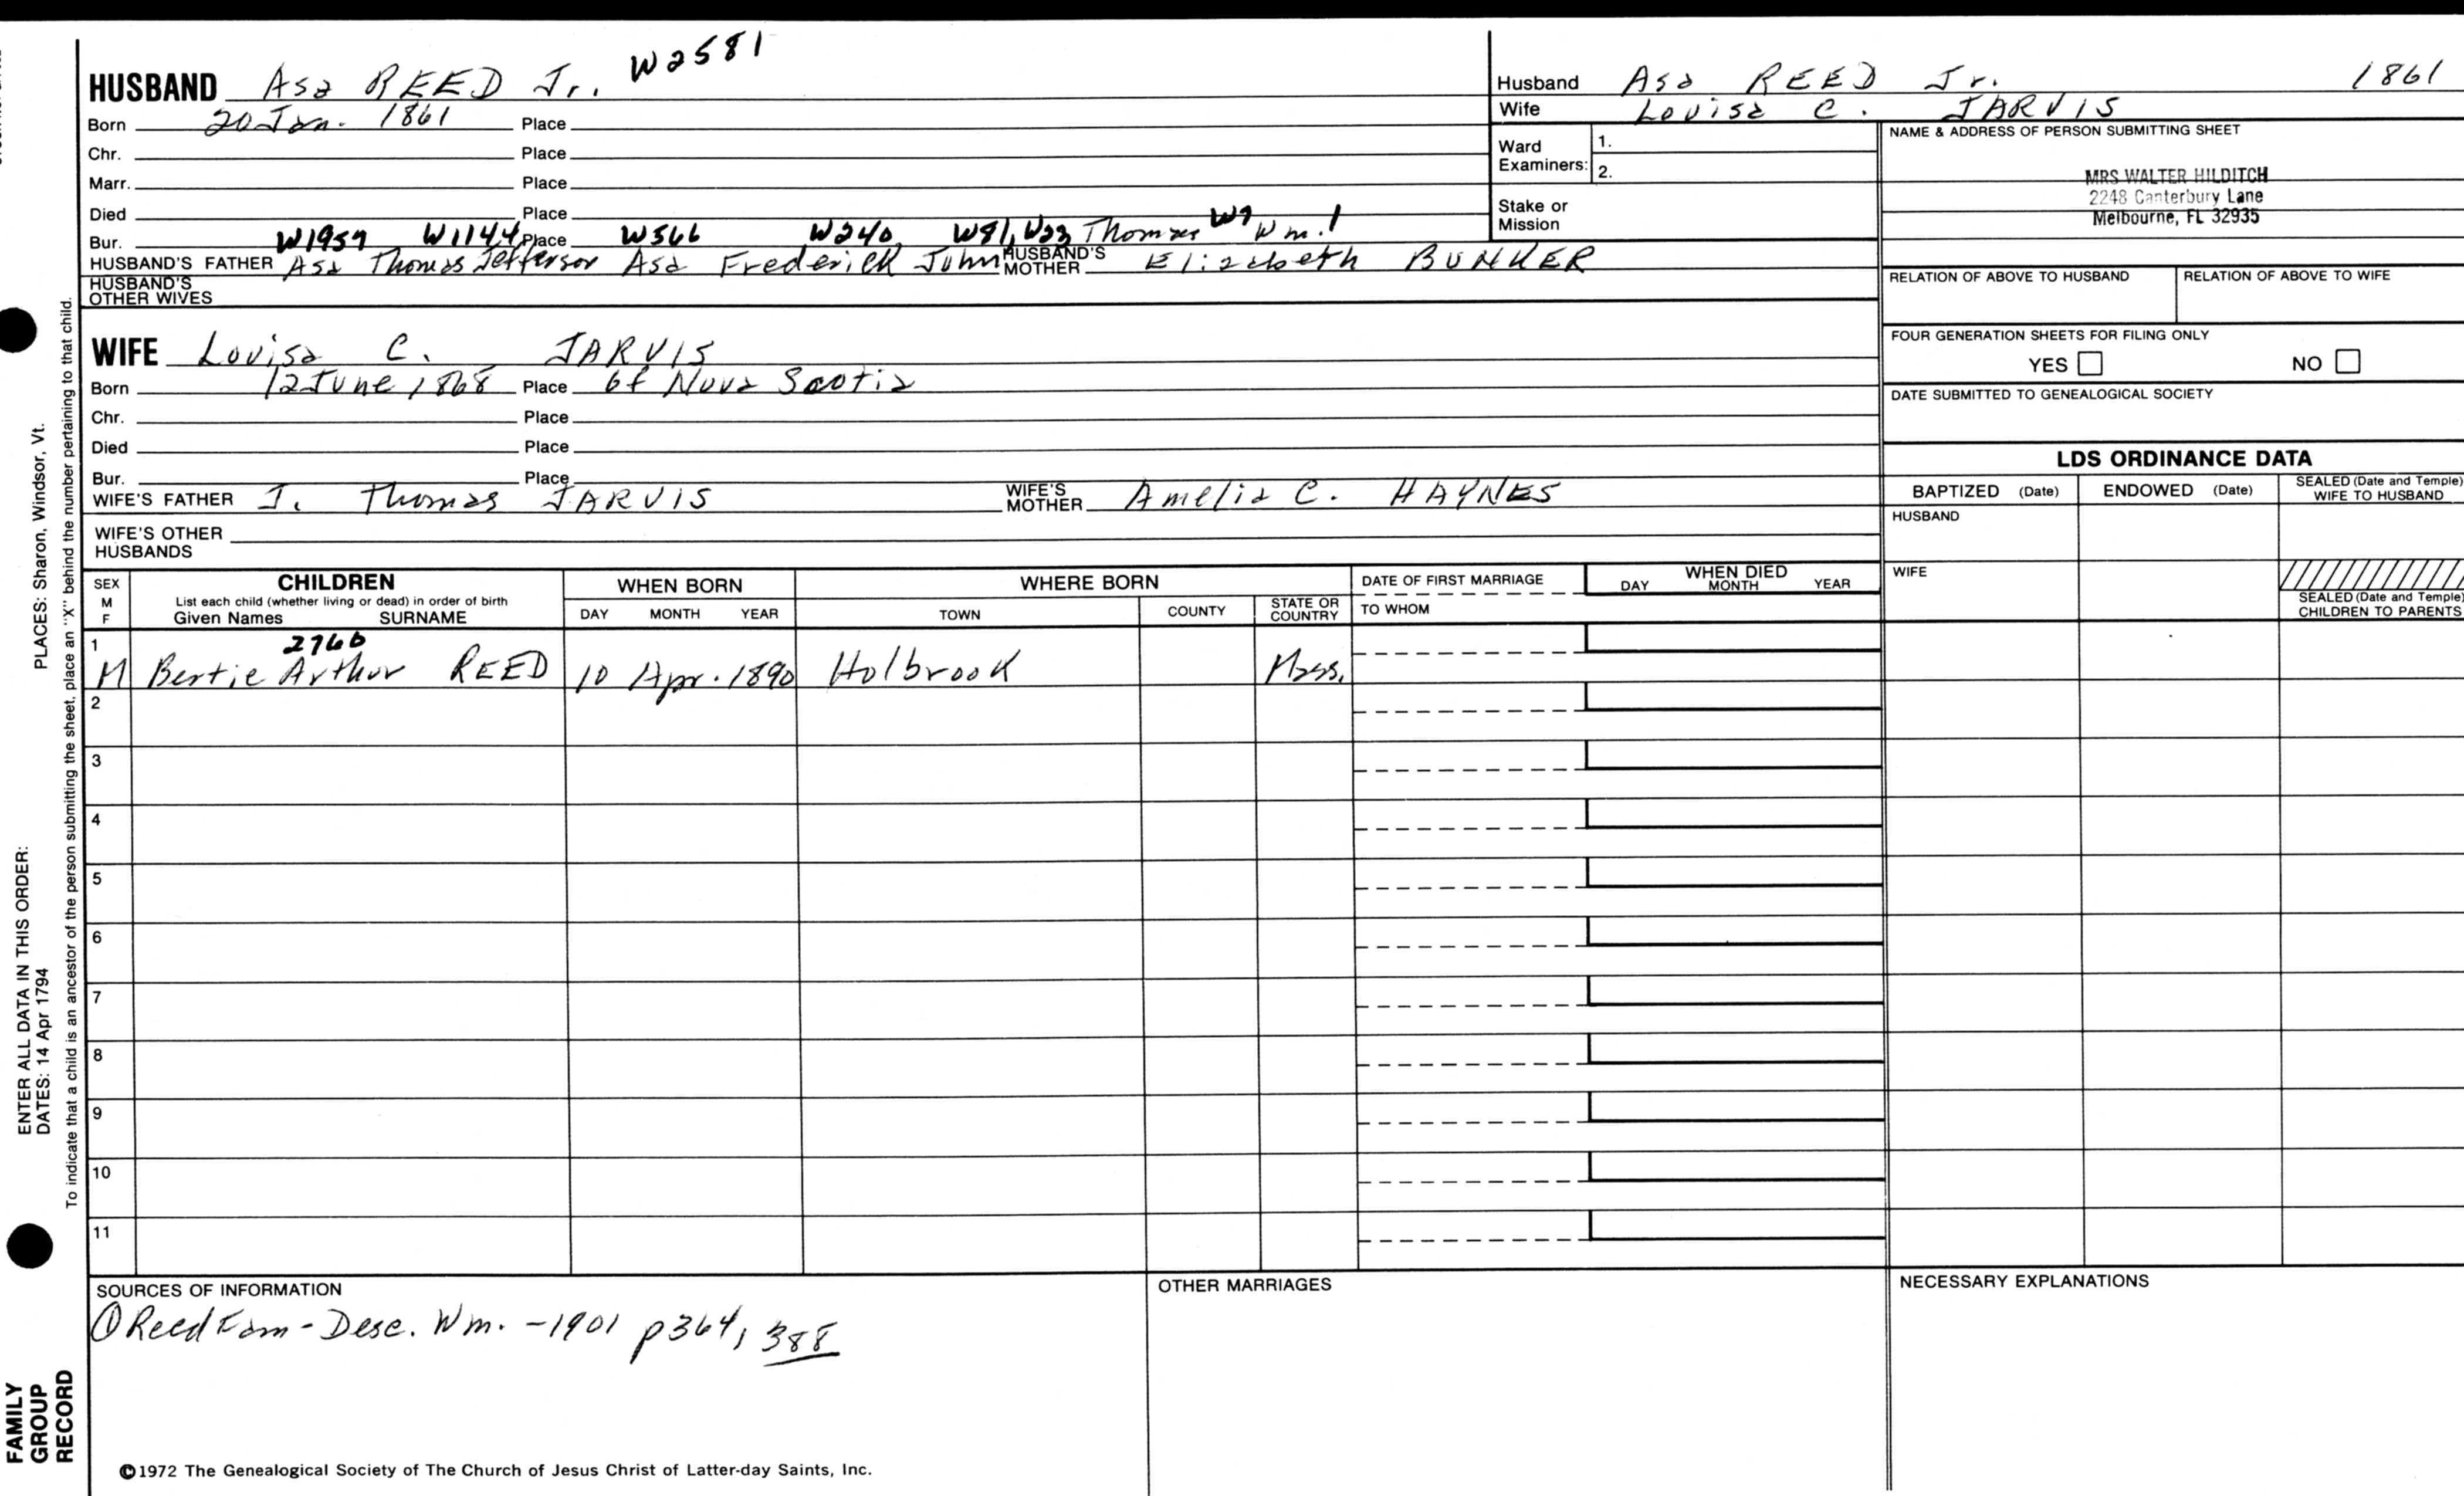 W2581
HUSBAND Asa REED Jr.
Born 20 Jan. 1861 Place
Chr. Place
Marr. Place
Died Place
Bur. Place
W1959 W1144 W566 W240 W81, W23 Thomas W9 Wm. 1
HUSBAND'S FATHER Asa Thomas Jefferson Asa Frederick John HUSBAND'S MOTHER Elizabeth BUNKER
HUSBAND'S OTHER WIVES
WIFE Louisa C. JARVIS
Born 12 June 1868 Place of Nova Scotia
Chr. Place
Died Place
Bur. Place
WIFE'S FATHER J. Thomas JARVIS WIFE'S MOTHER Amelia C. HAYNES
WIFE'S OTHER HUSBANDS
Husband Asa REED Jr. 1861
Wife Louisa C. JARVIS
Ward Examiners: 1.
2.
Stake or Mission
NAME & ADDRESS OF PERSON SUBMITTING SHEET
MRS WALTER HILDITCH
2248 Canterbury Lane
Melbourne, FL 32935
RELATION OF ABOVE TO HUSBAND RELATION OF ABOVE TO WIFE
FOUR GENERATION SHEETS FOR FILING ONLY
YES NO
DATE SUBMITTED TO GENEALOGICAL SOCIETY
LDS ORDINANCE DATA
BAPTIZED (Date) ENDOWED (Date) SEALED (Date and Temple) WIFE TO HUSBAND
HUSBAND
WIFE
SEALED (Date and Temple) CHILDREN TO PARENTS
SEX M F
CHILDREN
List each child (whether living or dead) in order of birth
Given Names SURNAME
WHEN BORN
DAY MONTH YEAR
WHERE BORN
TOWN COUNTY STATE OR COUNTRY
DATE OF FIRST MARRIAGE
TO WHOM
WHEN DIED
DAY MONTH YEAR
1 2766
M Bertie Arthur REED 10 Apr. 1890 Holbrook Mass.
2
3
4
5
6
7
8
9
10
11
SOURCES OF INFORMATION
① Reed Fam - Desc. Wm. - 1901 p364, 388
OTHER MARRIAGES
NECESSARY EXPLANATIONS
©1972 The Genealogical Society of The Church of Jesus Christ of Latter-day Saints, Inc.
ENTER ALL DATA IN THIS ORDER:
DATES: 14 Apr 1794 PLACES: Sharon, Windsor, Vt.
To indicate that a child is an ancestor of the person submitting the sheet, place an "X" behind the number pertaining to that child.
FAMILY
GROUP
RECORD